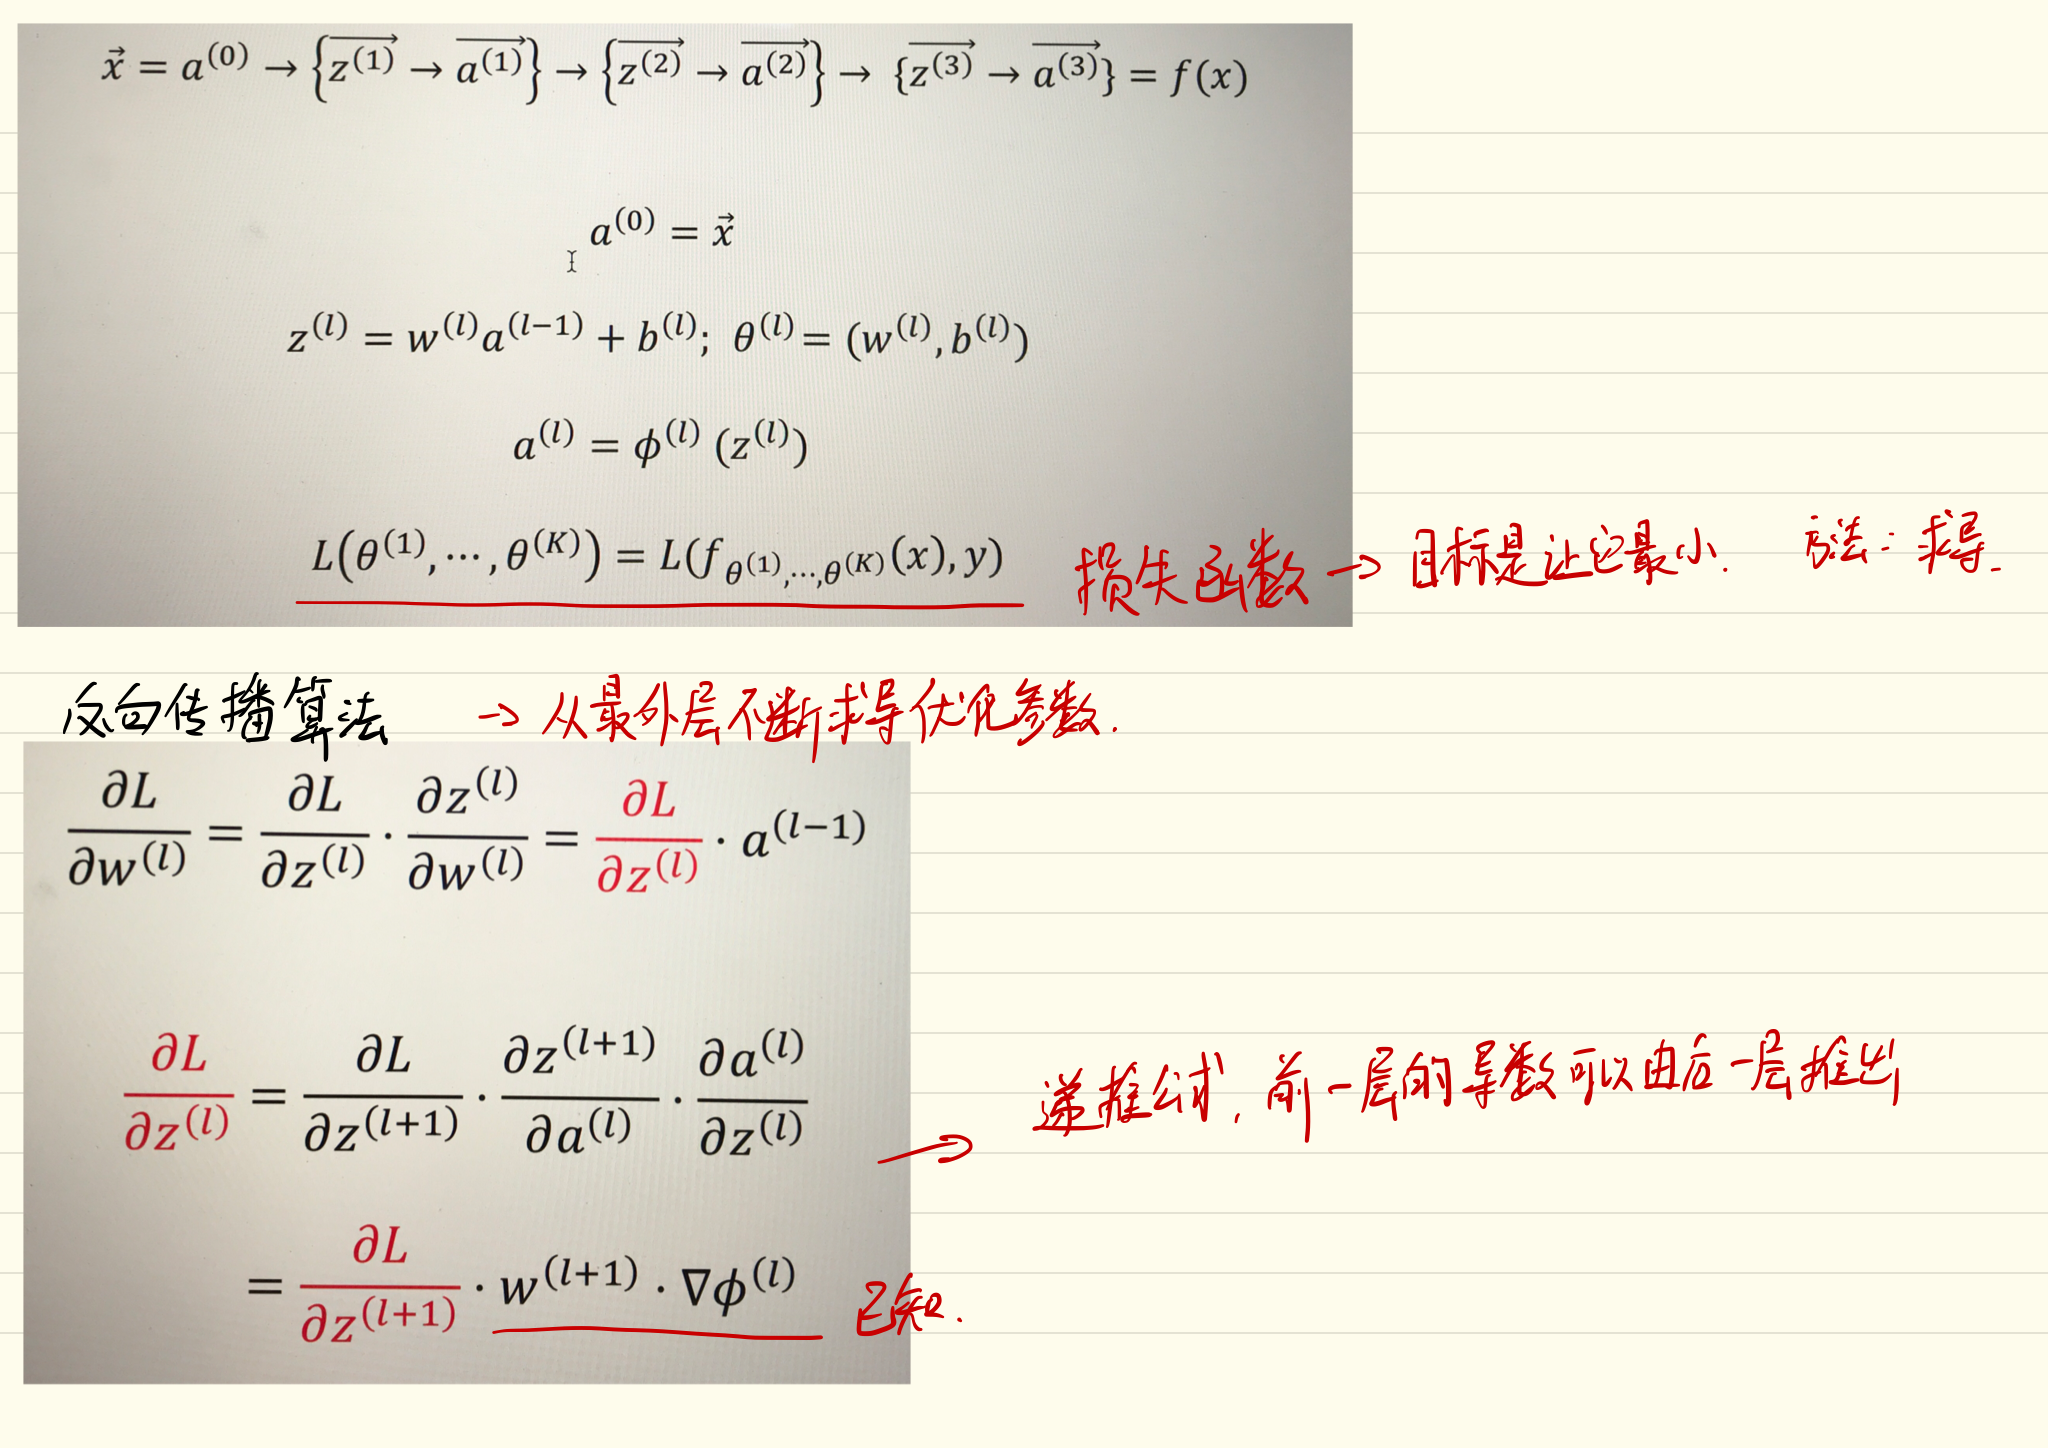 $\vec{x} = a^{(0)} \to \left\{\overrightarrow{z^{(1)}} \to \overrightarrow{a^{(1)}}\right\} \to \left\{\overrightarrow{z^{(2)}} \to \overrightarrow{a^{(2)}}\right\} \to \{\overrightarrow{z^{(3)}} \to \overrightarrow{a^{(3)}}\} = f(x)$
$a^{(0)} = \vec{x}$
$z^{(l)} = w^{(l)}a^{(l-1)} + b^{(l)};\ \theta^{(l)} = (w^{(l)}, b^{(l)})$
$a^{(l)} = \phi^{(l)}(z^{(l)})$
$L(\theta^{(1)}, \cdots, \theta^{(K)}) = L(f_{\theta^{(1)},\cdots,\theta^{(K)}}(x), y)$ 损失函数 → 目标是让它最小. 方法: 求导.
反向传播算法 → 从最外层不断求导优化参数.
$\frac{\partial L}{\partial w^{(l)}} = \frac{\partial L}{\partial z^{(l)}} \cdot \frac{\partial z^{(l)}}{\partial w^{(l)}} = \frac{\partial L}{\partial z^{(l)}} \cdot a^{(l-1)}$
$\frac{\partial L}{\partial z^{(l)}} = \frac{\partial L}{\partial z^{(l+1)}} \cdot \frac{\partial z^{(l+1)}}{\partial a^{(l)}} \cdot \frac{\partial a^{(l)}}{\partial z^{(l)}}$ → 递推公式, 前一层的导数可以由后一层推出
$= \frac{\partial L}{\partial z^{(l+1)}} \cdot w^{(l+1)} \cdot \nabla\phi^{(l)}$ 已知.